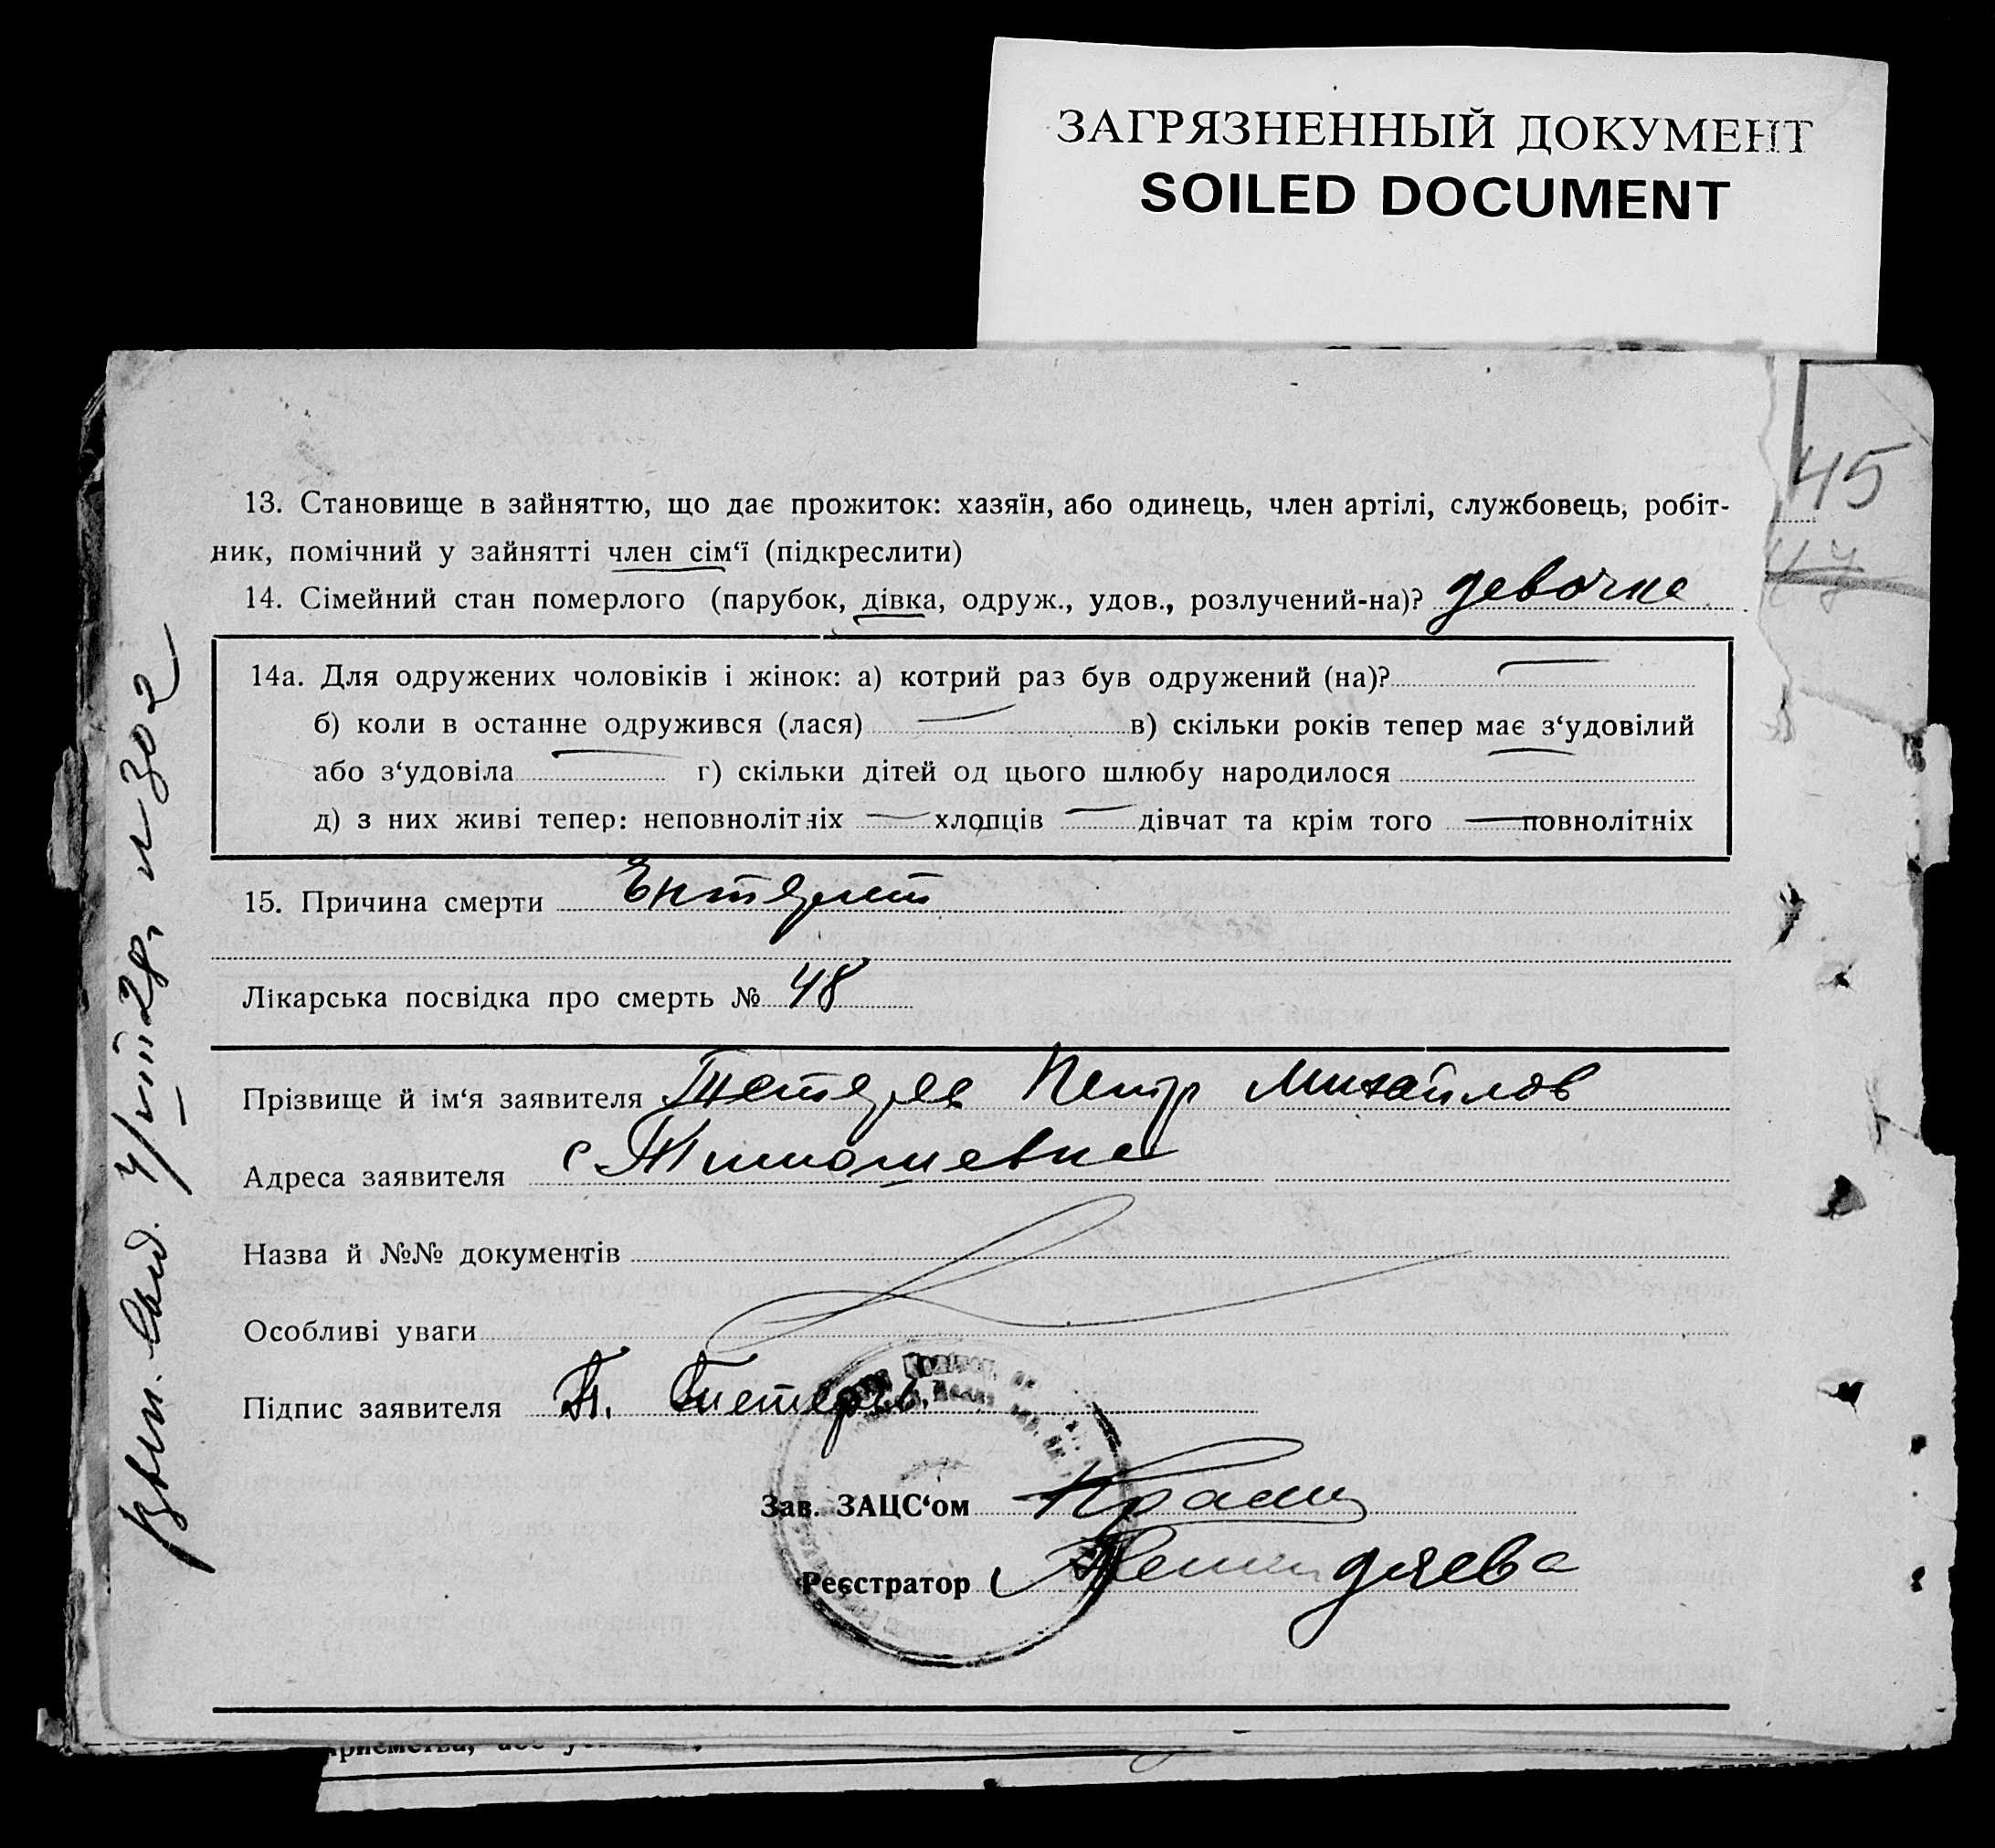 ЗАГРЯЗНЕННЫЙ ДОКУМЕНТ
SOILED DOCUMENT
45
13. Становище в зайняттю, що дає прожиток: хазяїн, або одинець, член артілі, службовець, робіт-
ник, помічний у зайнятті член сім‘ї (підкреслити)
14. Сімейний стан померлого (парубок, дівка, одруж., удов., розлучений-на)? девочка
14а. Для одружених чоловіків і жінок: а) котрий раз був одружений (на)? —
б) коли в останнє одружився (лася) — в) скільки років тепер має з‘удовілий
або з‘удовіла — г) скільки дітей од цього шлюбу народилося —
д) з них живі тепер: неповнолітніх — хлопців — дівчат та крім того — повнолітніх
15. Причина смерти Ентерит
Лікарська посвідка про смерть № 48
Прізвище й ім‘я заявителя Тетерев Петр Михайлов
Адреса заявителя с Тимошевка
Назва й №№ документів
Особливі уваги
Підпис заявителя П. Тетерев.
Зав. ЗАЦС‘ом
Реєстратор
Вып. Свид. 4/VIII 28г. № 302